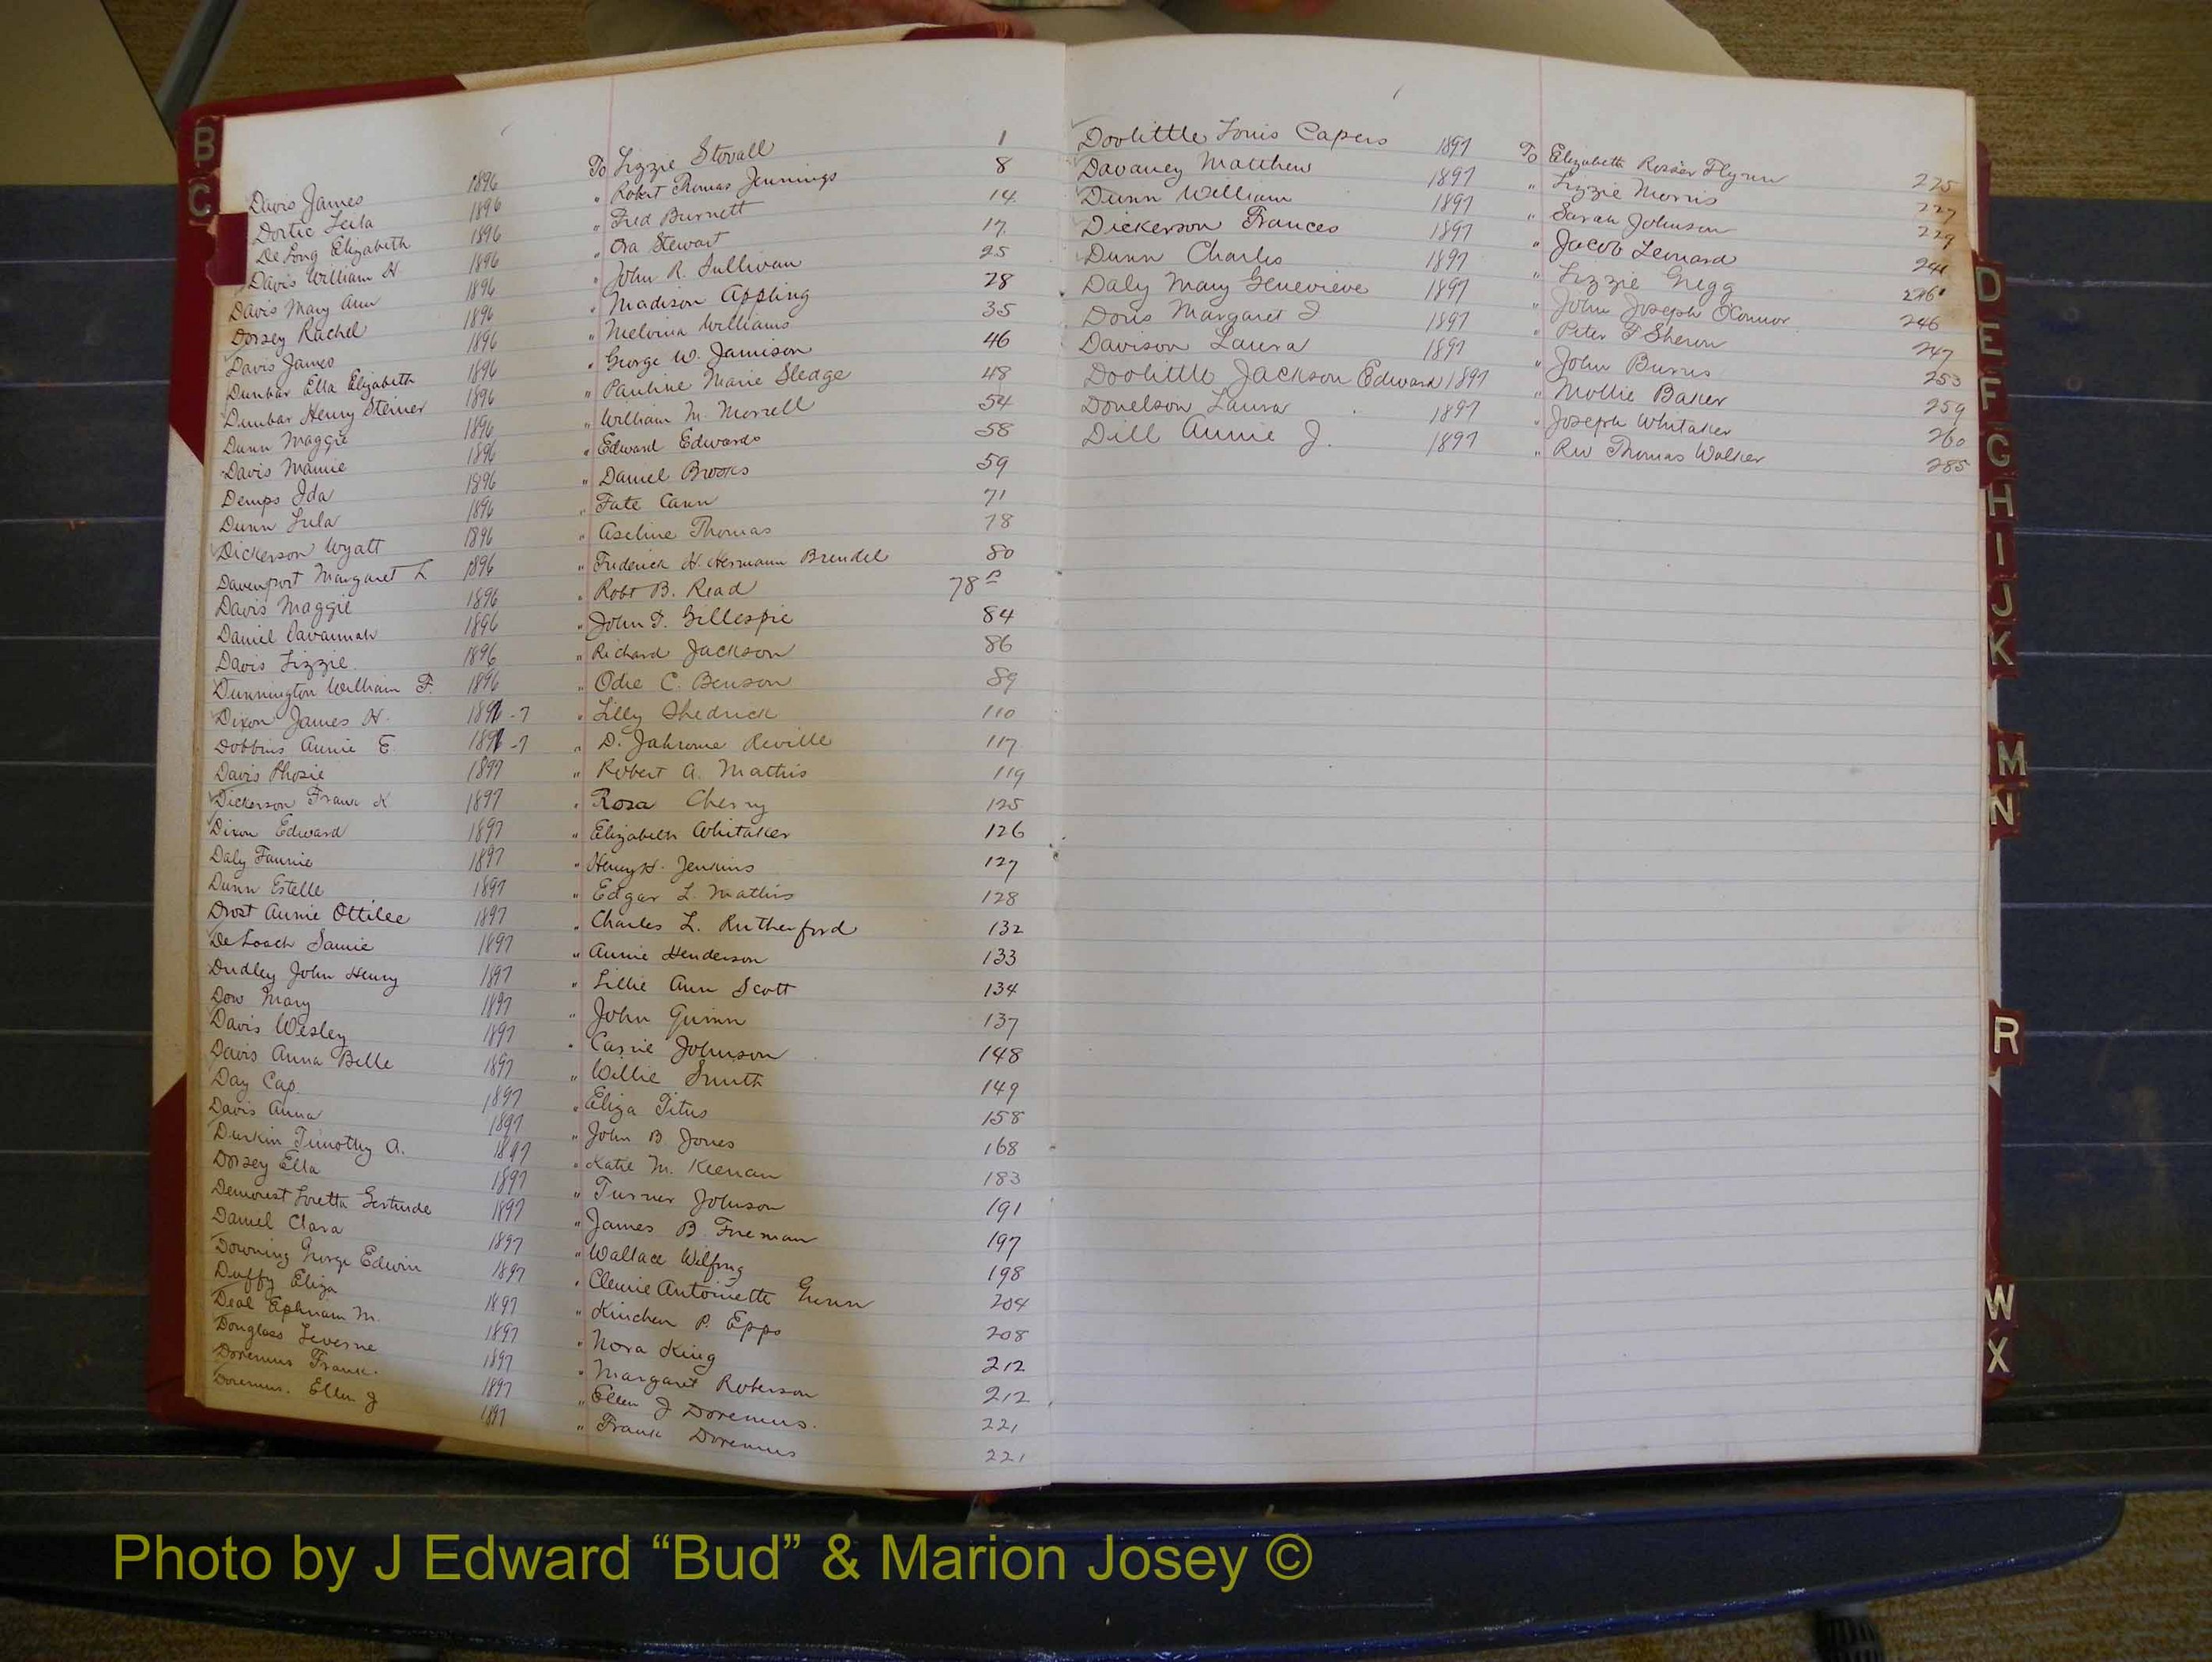 B
C
Davis James 1896 To Lizzie Stovall 1
Dortic Leila 1896 " Robert Thomas Jennings 8
DeLong Elizabeth 1896 " Fred Burnett 14
Davis William H 1896 " Ora Stewart 17
Davis Mary Ann 1896 " John R. Sullivan 25
Dorsey Rachel 1896 " Madison Appling 28
Davis James 1896 " Melvina Williams 35
Dunbar Ella Elizabeth 1896 " George W. Jamison 46
Dunbar Henry Steiner 1896 " Pauline Marie Sledge 48
Dunn Maggie 1896 " William M. Morrell 54
Davis Mamie 1896 " Edward Edwards 58
Demps Ida 1896 " Daniel Brooks 59
Dunn Lula 1896 " Fate Cann 71
Dickerson Wyatt 1896 " Aseline Thomas 78
Davenport Margaret L 1896 " Frederick H. Hermann Brendel 80
Davis Maggie 1896 " Robt B. Read 78 B
Daniel Savannah 1896 " John T. Gillespie 84
Davis Lizzie 1896 " Richard Jackson 86
Dunnington William F. 1896 " Odie C. Benson 89
Dixon James H. 1896-7 " Lilly Shedrick 110
Dobbins Annie E 1896-7 " D. Jahrome Reville 117
Davis Phozie 1897 " Robert A. Mathis 119
Dickerson Frank K 1897 " Rosa Cherry 125
Dixon Edward 1897 " Elizabeth Whitaker 126
Daly Fannie 1897 " Henry H. Jenkins 127
Dunn Estelle 1897 " Edgar L. Mathis 128
Drost Annie Ottilee 1897 " Charles L. Rutherford 132
DeLoach Samie 1897 " Annie Henderson 133
Dudley John Henry 1897 " Lillie Ann Scott 134
Dow Mary 1897 " John Quinn 137
Davis Wesley 1897 " Carrie Johnson 148
Davis Anna Belle 1897 " Willie Smith 149
Day Cap. 1897 " Eliza Titus 158
Davis Anna 1897 " John B Jones 168
Durkin Timothy A. 1897 " Katie M. Keenan 183
Dorsey Ella 1897 " Turner Johnson 191
Demorest Loretta Gertrude 1897 " James B. Freeman 197
Daniel Clara 1897 " Wallace Wilfong 198
Downing George Edwin 1897 " Clemie Antoinette Gunn 204
Duffy Eliza 1897 " Kinchen P. Epps 208
Deal Ephriam M. 1897 " Nora King 212
Douglass Leverne 1897 " Margaret Roberson 212
Doremus Frank. 1897 " Ellen J Doremus. 221
Doremus. Ellen J 1897 " Frank Doremus 221
Doolittle Louis Capers 1897 To Elizabeth Rosier Flynn 225
Davaney Matthew 1897 " Lizzie Morris 227
Dunn William 1897 " Sarah Johnson 229
Dickerson Frances 1897 " Jacob Leonard 241
Dunn Charles 1897 " Lizzie Gregg 246
Daly Mary Genevieve 1897 " John Joseph O'Connor 246
Doris Margaret I 1897 " Peter F Sheron 247
Davison Laura 1897 " John Burris 253
Doolittle Jackson Edward 1897 " Mollie Baker 259
Donelson Laura 1897 " Joseph Whitaker 260
Dill Annie J. 1897 " Rev Thomas Walker 285
D
E
F
G
H
I
J
K
M
N
R
W
X
Photo by J Edward “Bud” & Marion Josey ©